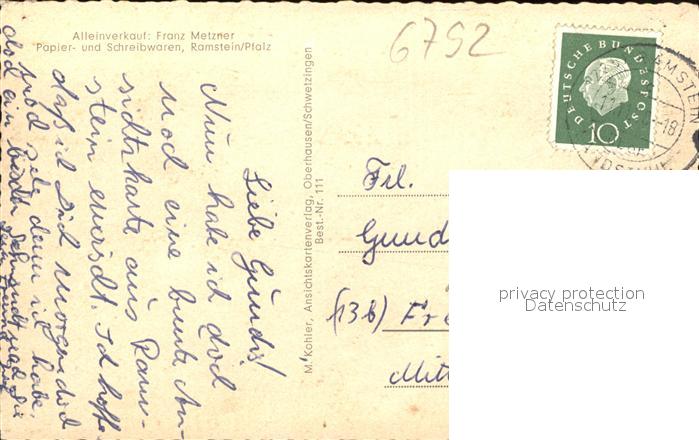 Alleinverkauf: Franz Metzner
Papier- und Schreibwaren, Ramstein/Pfalz
6792
DEUTSCHE BUNDESPOST
10
RAMSTEIN
-18
M. Kohler, Ansichtskartenverlag, Oberhausen/Schwetzingen
Best.-Nr. 111
Liebe Gundis!
Nun hab ich doch
noch eine bunte An-
sichtskarte aus Ram-
stein erwischt. Ich hoffe
daß ich Dich morgen doch
noch seh, denn ich habe
doch ein
Frl.
Gund
(13b) Fr
Mitt
privacy protection
Datenschutz